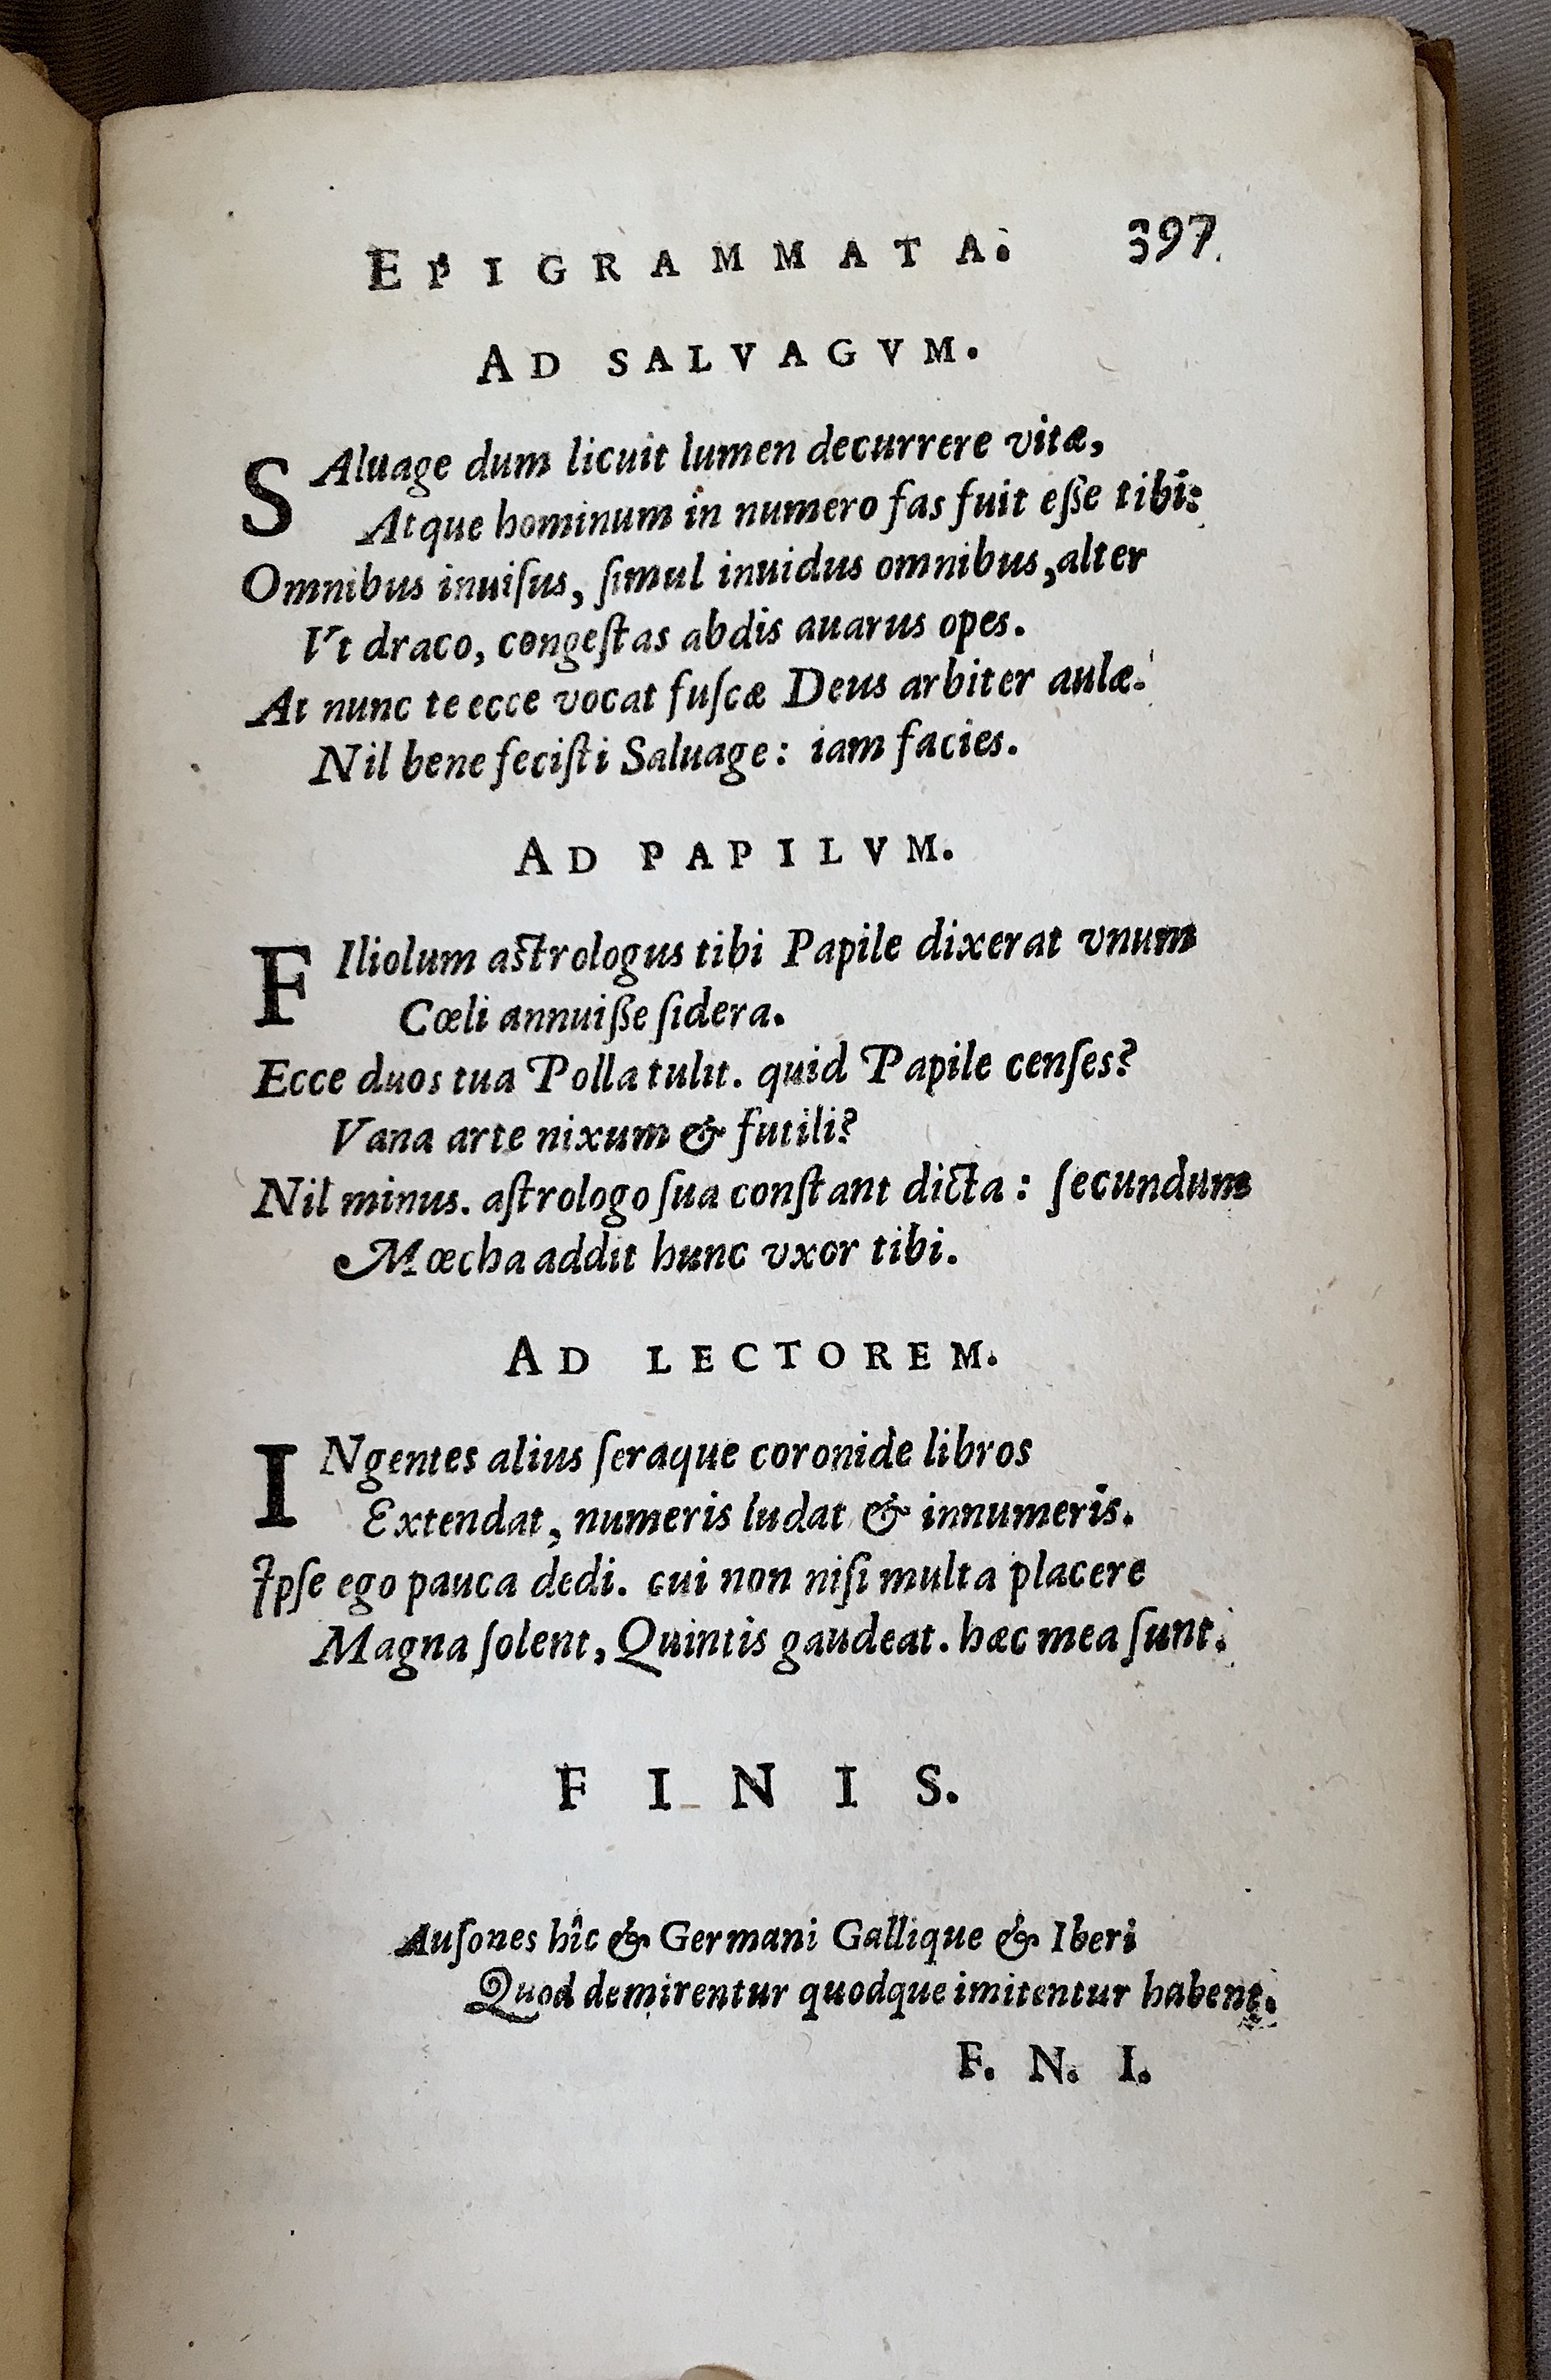 EPIGRAMMATA. 397
AD SALVAGVM.
SAluage dum licuit lumen decurrere vitæ,
Atque hominum in numero fas fuit eſſe tibi:
Omnibus inuiſus, ſimul inuidus omnibus, alter
Vt draco, congeſtas abdis auarus opes.
At nunc te ecce vocat fuſcæ Deus arbiter aulæ.
Nil bene feciſti Saluage: iam facies.
AD PAPILVM.
FIliolum aſtrologus tibi Papile dixerat vnum
Cœli annuiſſe ſidera.
Ecce duos tua Polla tulit. quid Papile cenſes?
Vana arte nixum & futili?
Nil minus. aſtrologo ſua conſtant dicta: ſecundum
Mœcha addit hunc vxor tibi.
AD LECTOREM.
INgentes alius ſeraque coronide libros
Extendat, numeris ludat & innumeris.
Ipſe ego pauca dedi. cui non niſi multa placere
Magna ſolent, Quintis gaudeat. hæc mea ſunt.
FINIS.
Auſones hîc & Germani Gallique & Iberi
Quod demirentur quodque imitentur habent.
F. N. I.